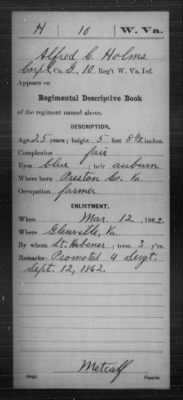 H 10 W. Va.
Alfred C. Holms
Corpl, Co. D, 10 Reg't W. Va. Inf.
Appears on
Regimental Descriptive Book
of the regiment named above.
DESCRIPTION.
Age 25 years; height 5 feet 8½ inches.
Complexion fair
Eyes blue; hair auburn
Where born Preston Co. Va.
Occupation farmer
ENLISTMENT.
When Mar. 12, 1862.
Where Glenville, Va
By whom Lt. Hebener; term 3 y'rs.
Remarks: Promoted 4 Sergt.
Sept. 12, 1862.
Metcalf
Copyist.